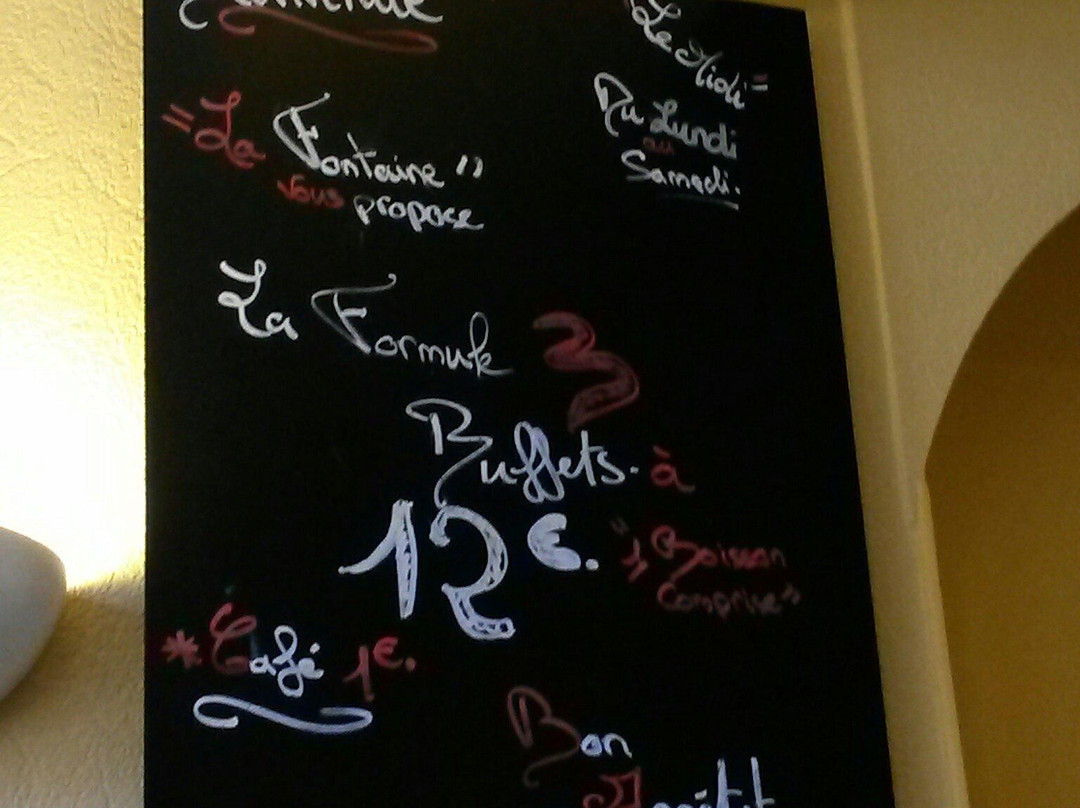 Le Midi =
Du Lundi
au
Samedi.
"La Fontaine"
Vous propose
La Formule
Buffets. à
12€. "1 Boisson
Comprise"
* Café 1€.
Bon
Appétit